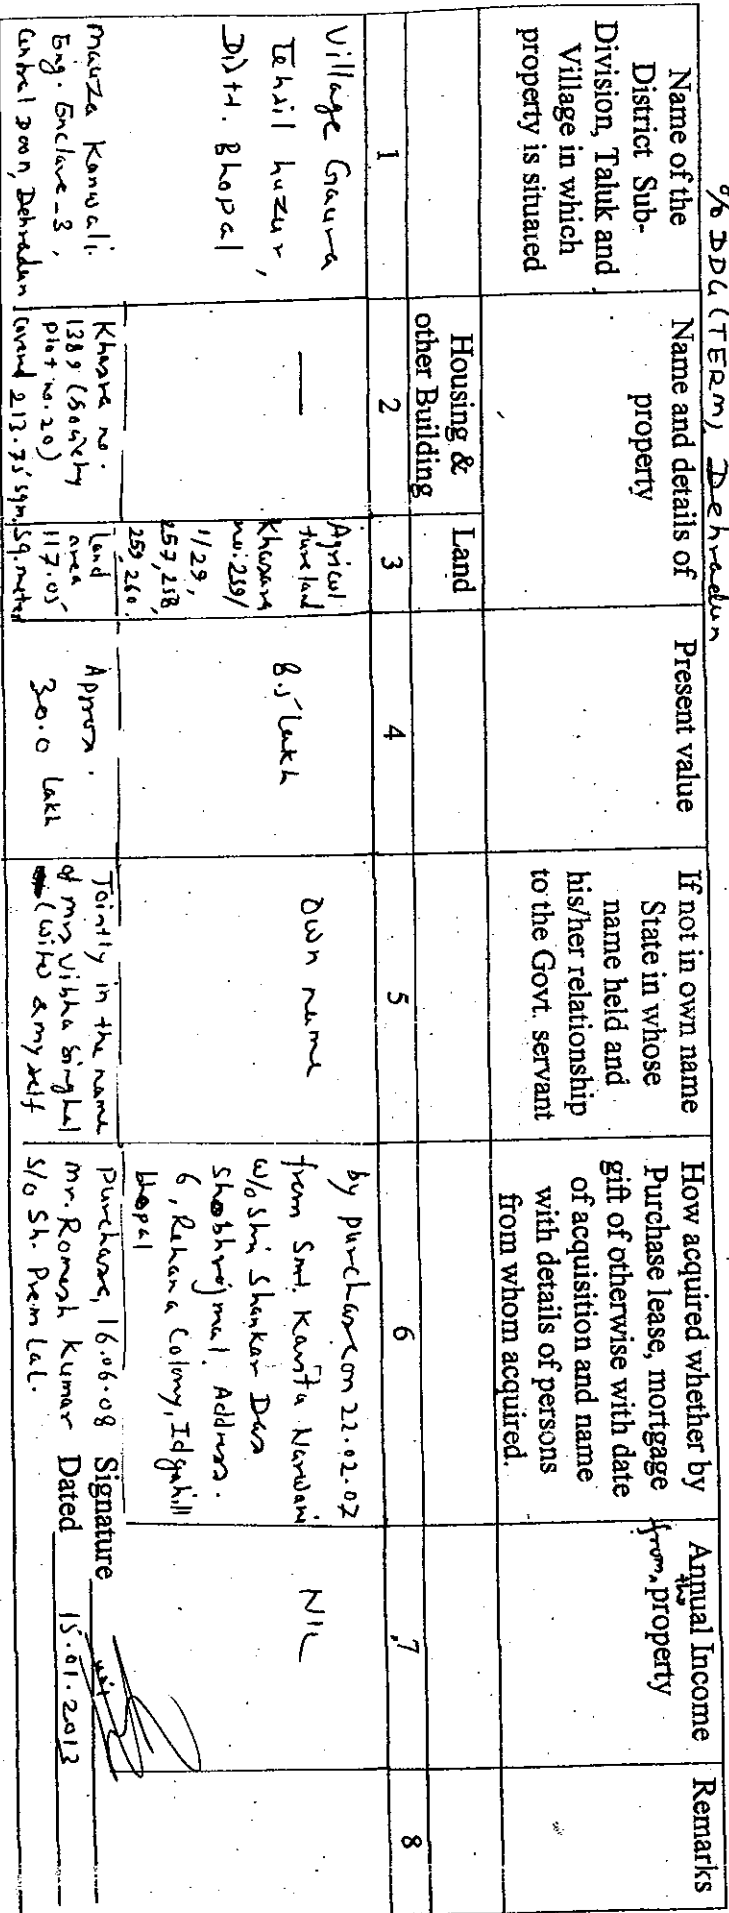 % DDG (TERM), Dehradun
Name of the
District Sub-
Division, Taluk and
Village in which
property is situated
Name and details of
property
Housing &
other Building
Land
Present value
If not in own name
State in whose
name held and
his/her relationship
to the Govt. servant
How acquired whether by
Purchase lease, mortgage
gift of otherwise with date
of acquisition and name
with details of persons
from whom acquired.
Annual Income
from the property
Remarks
1 2 3 4 5 6 7 8
Village Gaura
Tehsil huzur,
Distt. Bhopal
—
Agricul
ture land
Khasara
no. 259/
1/29,
257, 258,
259, 260.
8.5 Lakh
Own name
by purchase on 22.02.07
from Smt. Kanta Narwani
w/o Shri Shankar Das
Shobhrajmal. Address.
6, Rehana Colony, Idgahill
bhopal
NIL
Mauza Kanwali.
Eng. Enclave-3,
Central Doon, Dehradun
Khasra no.
1389 (Society
plot no. 20)
Covered 213.75 sqm.
Land
area
117.05
Sq. meter
Approx.
30.0 Lakh
Jointly in the name
of Mrs Vibha Singhal
(Wife & my self
Purchase, 16.06.08
Mr. Romesh Kumar
S/o Sh. Prem Lal.
Signature
Dated 15.01.2013